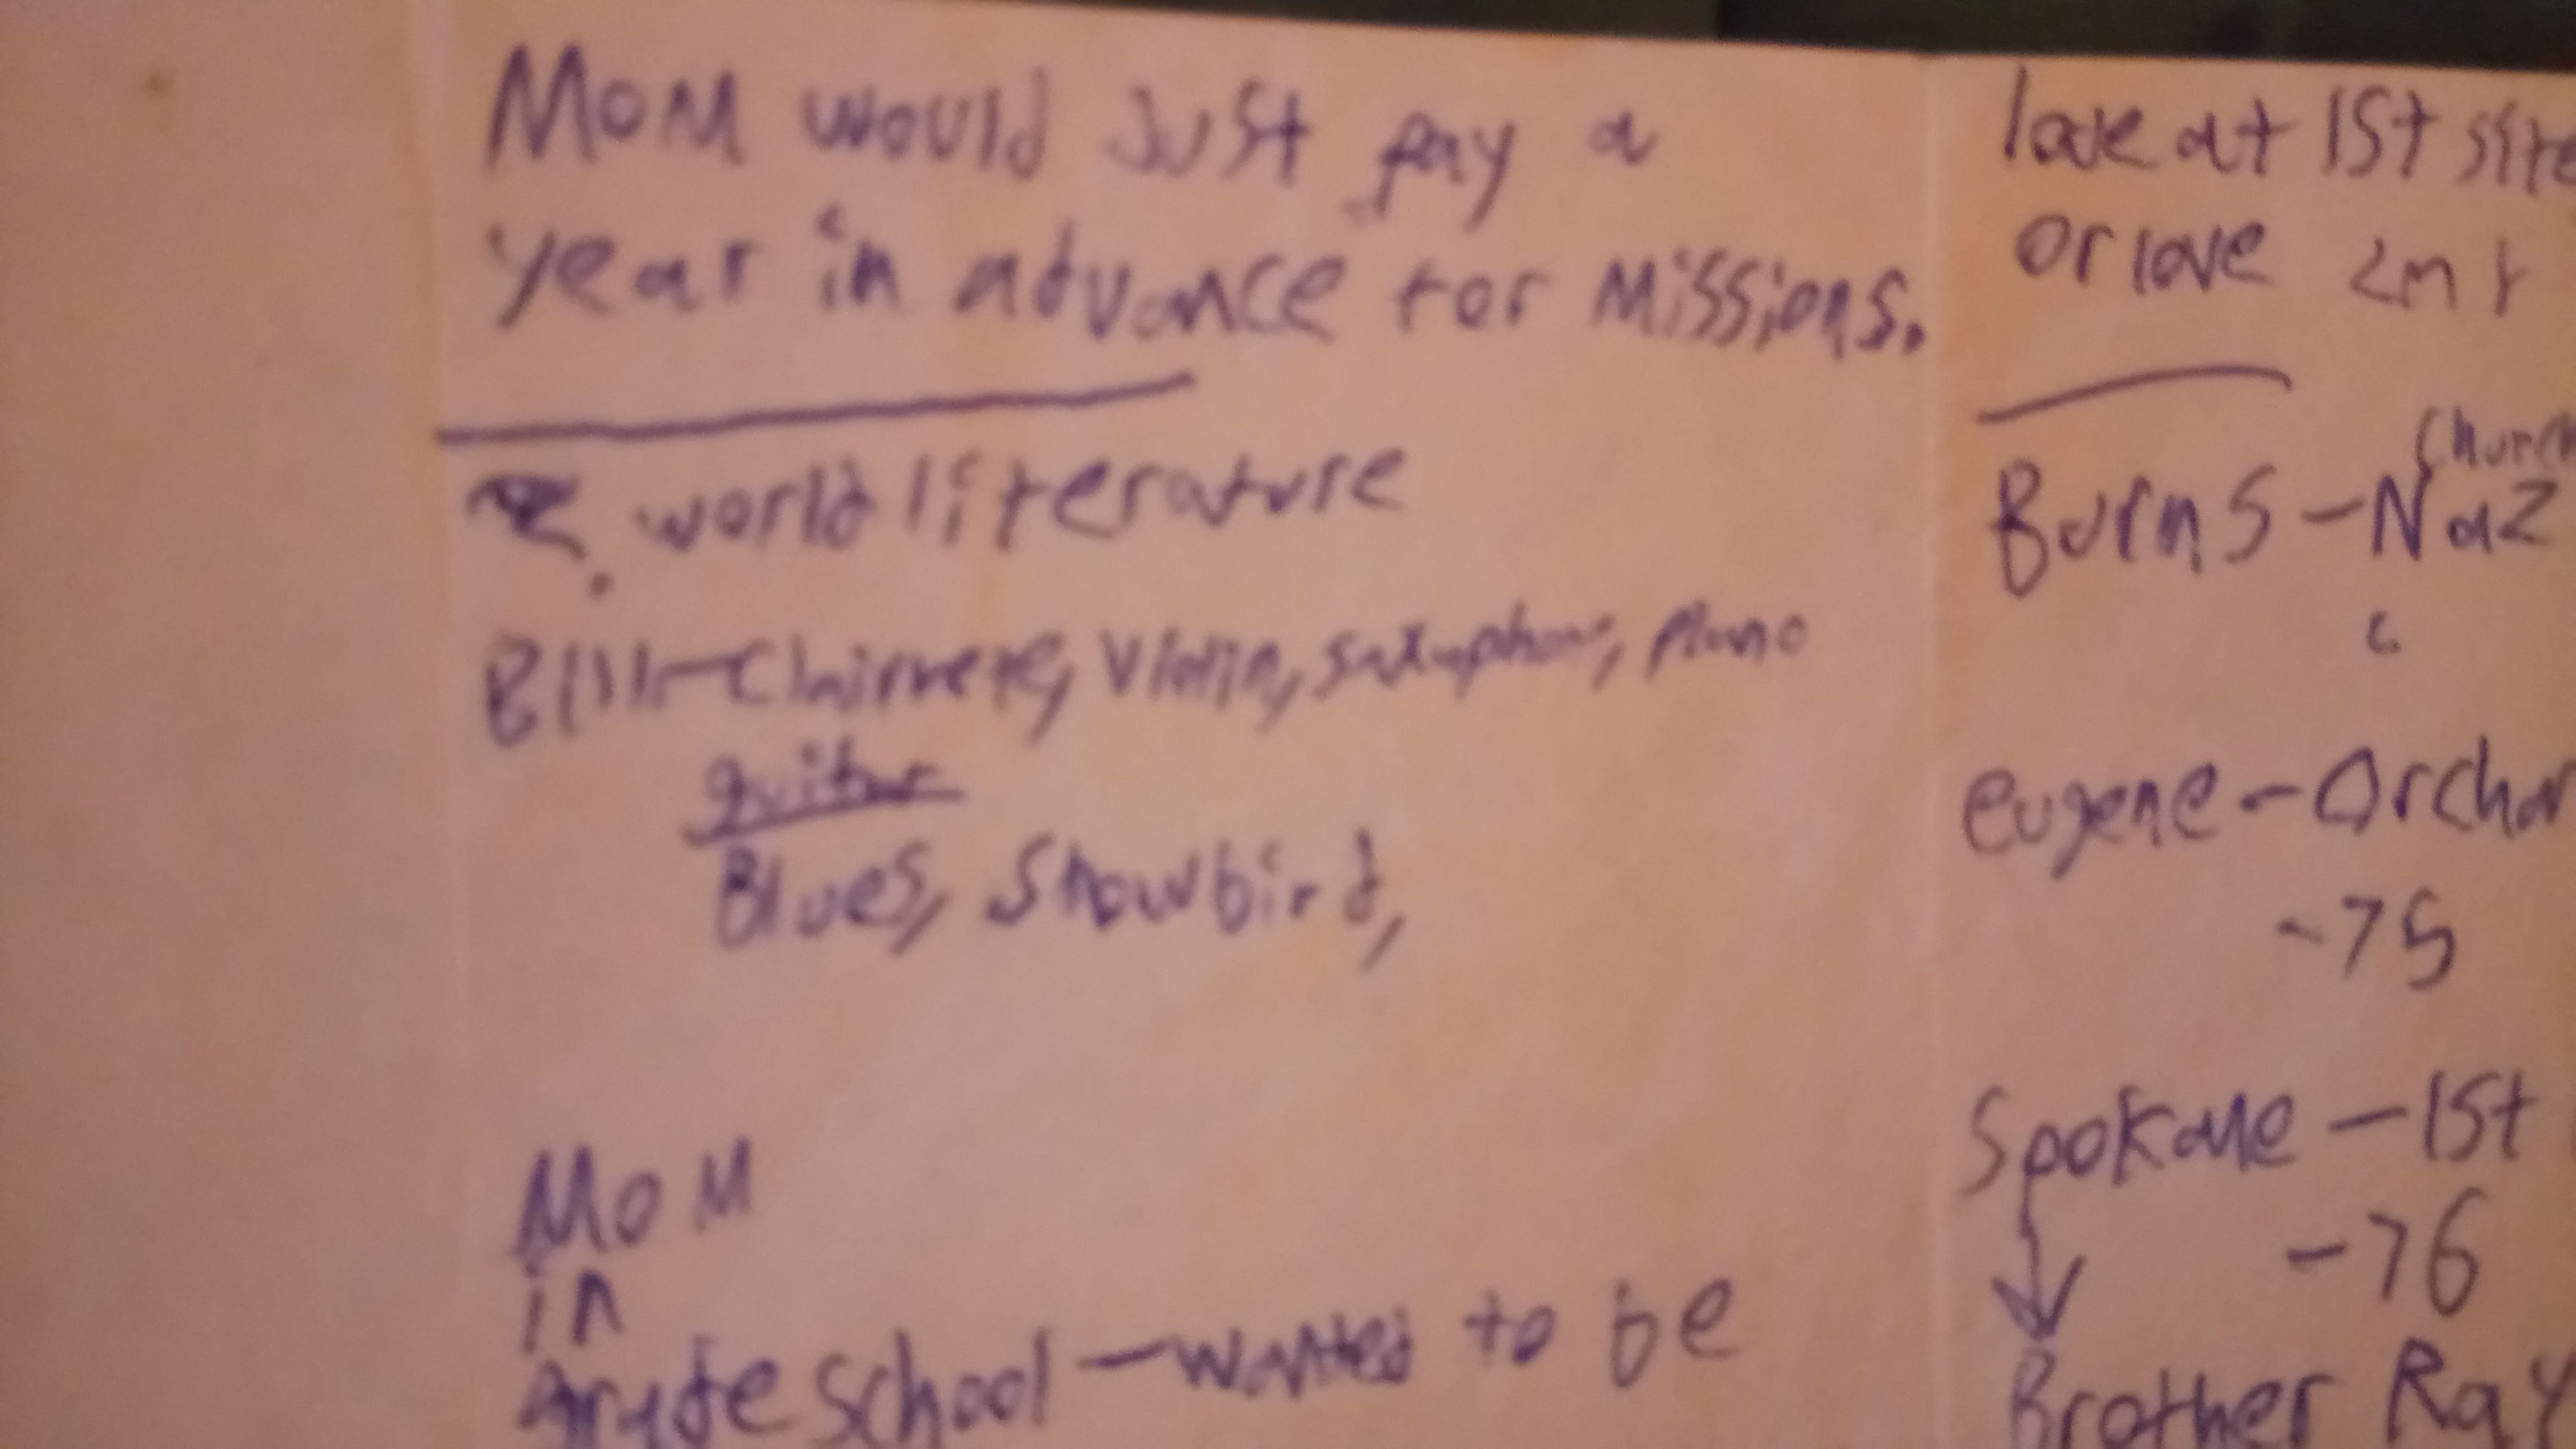 MoM would Just pay a
year in advance for Missions.
world literature
Bill-Clairnete, Violin, saxophone, piano
guitar
Blues, Snowbird,
MoM
in
grade school - wanted to be
love at 1st site
or love
Church
Burns - Naz
eugene - Orchar
-75
Spokane - 1st
-76
Brother Ray